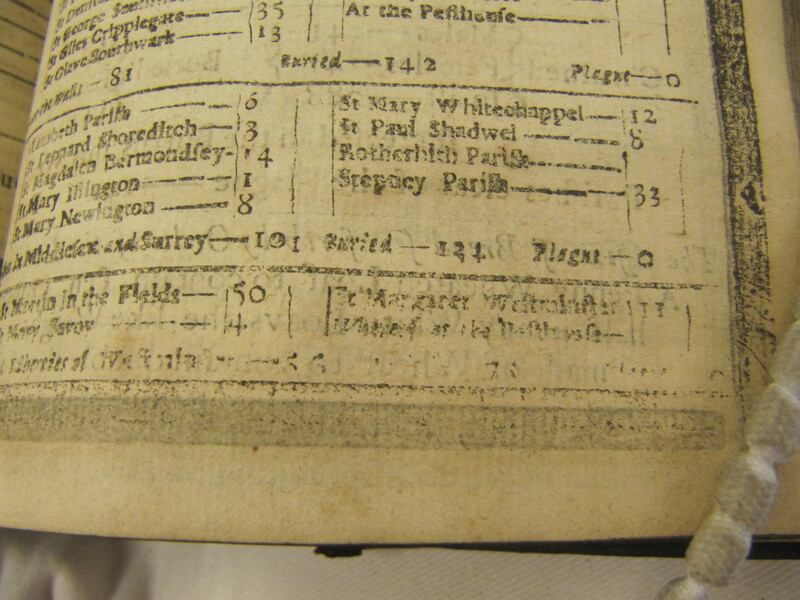 St George Southwark 35 At the Pesthouse
St Giles Cripplegate 13
St Olave Southwark
81 Buried 142 Plague 0
Lambeth Parish 6 St Mary Whitechappel 12
St Leonard Shoreditch 3 St Paul Shadwel 8
St Magdalen Bermondsey 14 Rotherhith Parish
St Mary Islington 1 Stepney Parish 33
St Mary Newington 8
in Middlesex and Surrey 101 Buried Plague 0
St Martin in the Fields 50 St Margaret Westminster 11
St Mary Savoy 4 at the Pesthouse
Liberties of Westminster